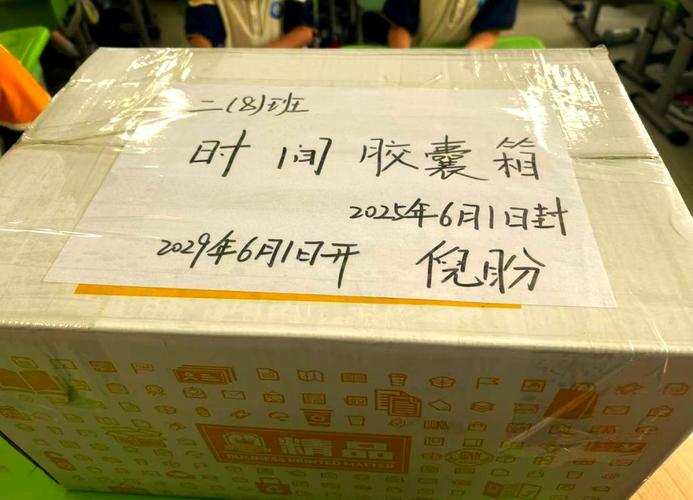 二(8)班
时间胶囊箱
2025年6月1日封
2029年6月1日开 倪盼
精品
BUSINESS PRINTED MATTER